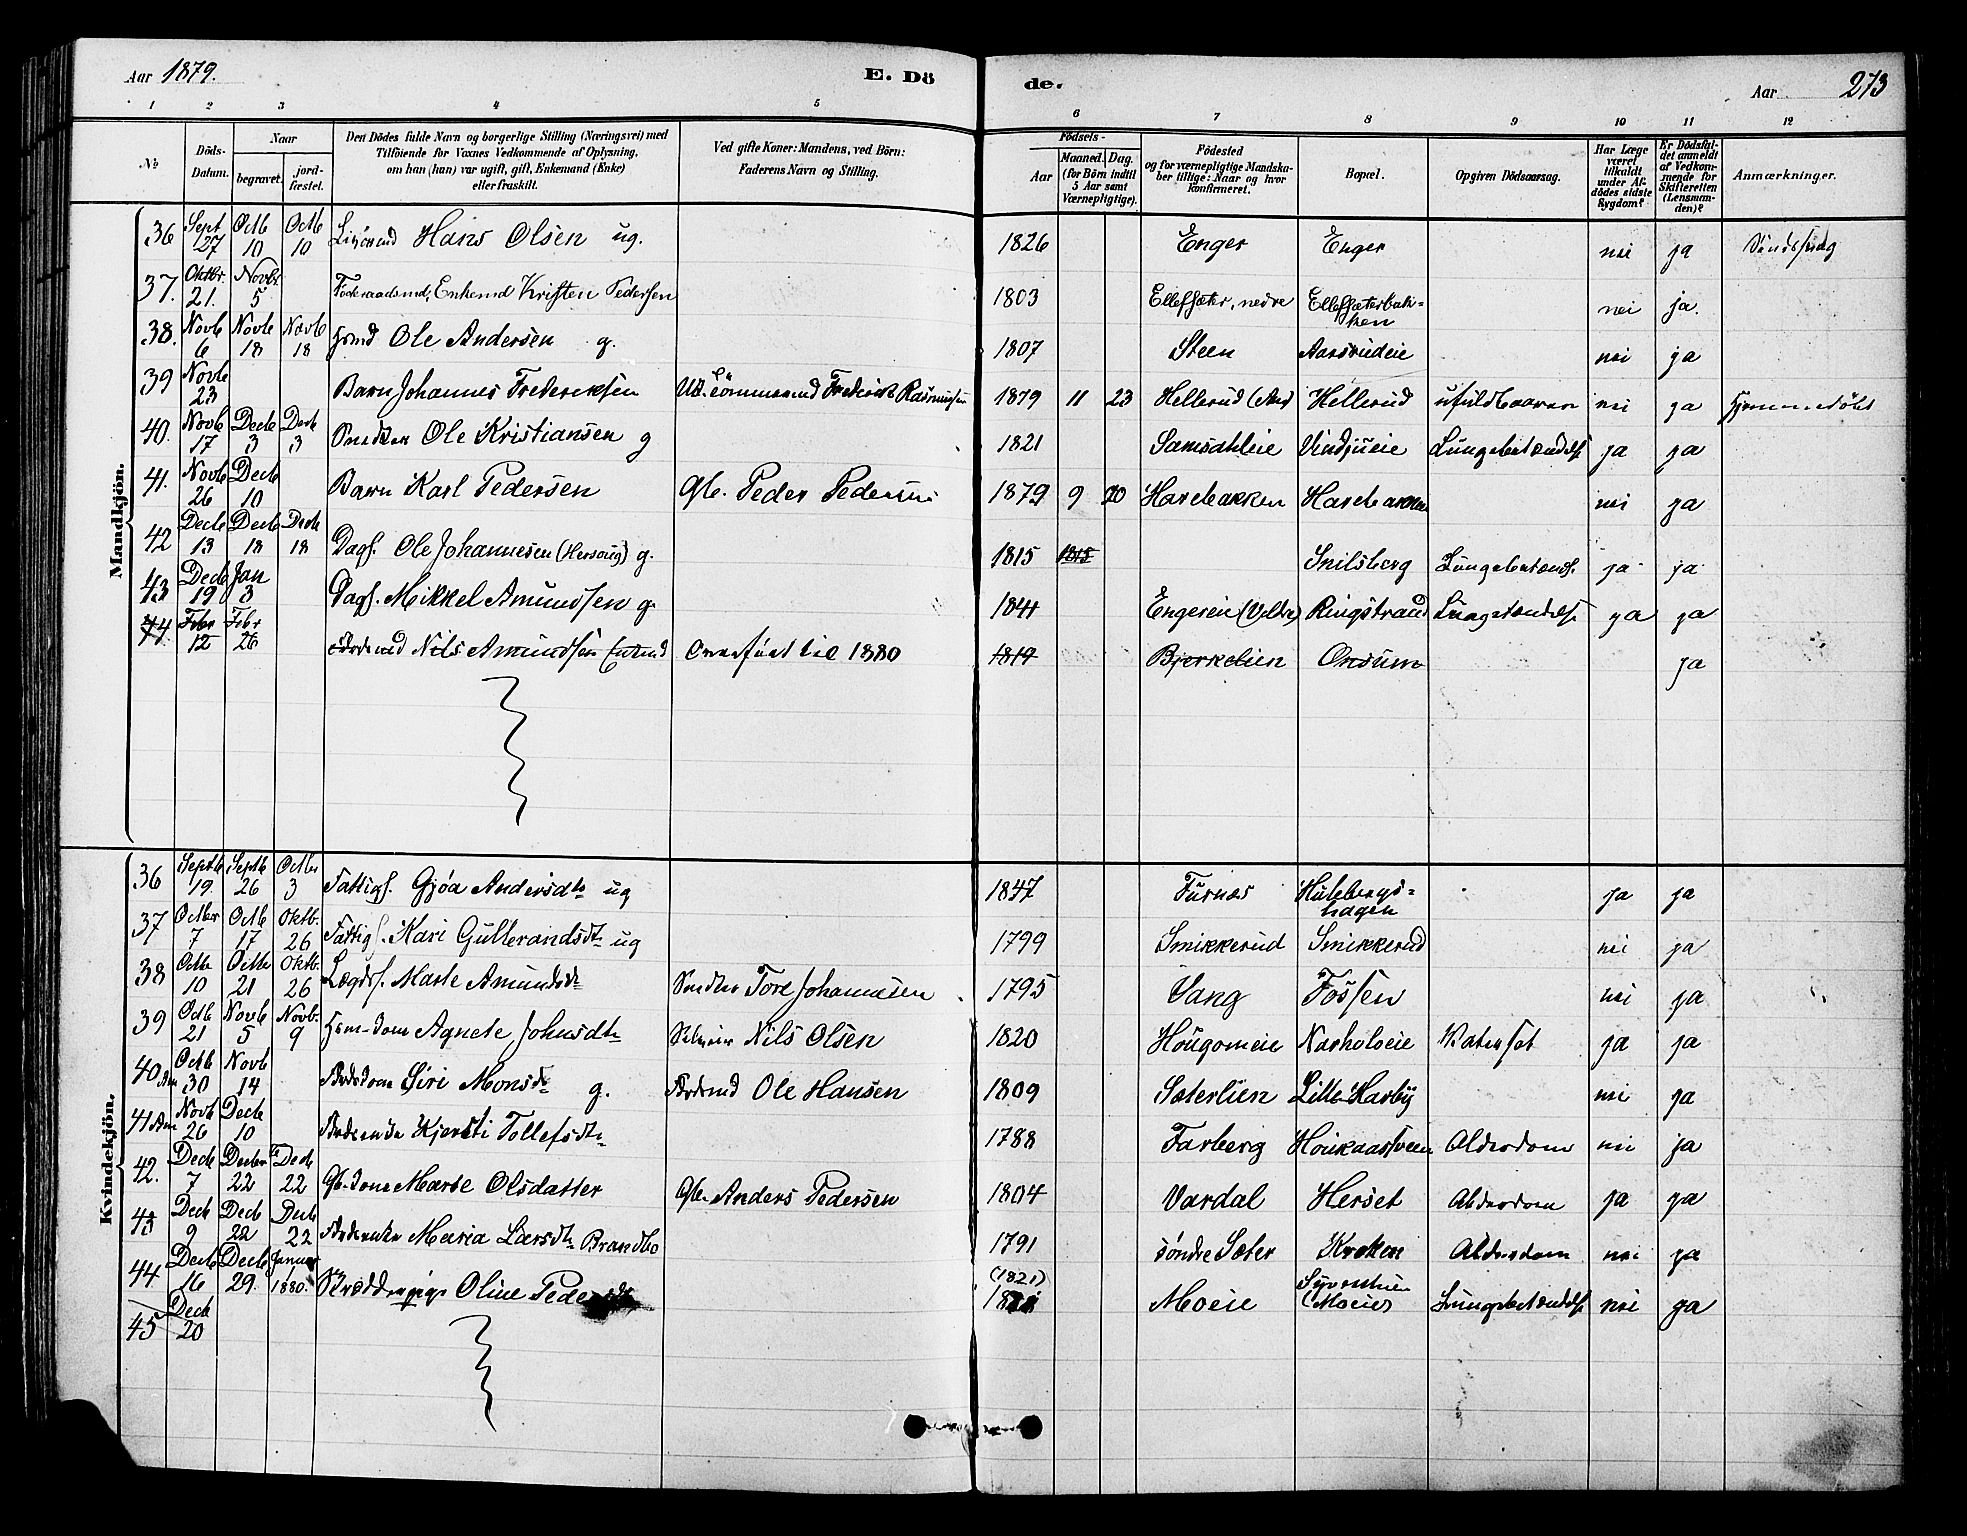 Aar 1879.
E. Dö
de.
Aar 273
1 2 3 4 5 6 7 8 9 10 11 12
No
Döds-Datum.
Naar
begravet.
jord-fæstet.
Den Dödes fulde Navn og borgerlige Stilling (Næringsvei) med
Tilföiende for Voxnes Vedkommende af Oplysning,
om han (hun) var ugift, gift, Enkemand (Enke)
eller fraskilt.
Ved gifte Koner: Mandens, ved Börn:
Faderens Navn og Stilling.
Födsels-
Aar
Maaned. Dag.
(for Börn indtil
5 Aar samt
Værnepligtige).
Födested
og for værnepligtige Mandska-
ber tillige: Naar og hvor
konfirmeret.
Bopæl.
Opgiven Dödsaarsag.
Har Læge
været
tilkaldt
under Af-
dödes sidste
Sygdom?
Er Dödsfal-
det anmeldt
af Vedkom-
mende for
Skifteretten
(Lensman-
den)?
Anmærkninger.
Mandkjön.
36 Sept 27 Octb 10 Octb 10 Hans Olsen ug. 1826 Enger Enger nei ja
37. Oktbr. 21. Novbr. 5 Föderaadsmd, Enkemd Kristen Pedersen 1803 Ellefsæter, nedre Ellefsæterbak-
ken nei ja.
38. Novb 6 Novb 18 Novb 18 Hsmd Ole Andersen g. 1807 Steen Aarsrudeie nei ja
39 Novb 23 Barn Johannes Frederiksen Tömmermd Frederik Rasmussen 1879 11 23 Hellerud Hellerud ufuldbaaren nei ja Hjemmedöbt
40. Novb 17 Decb 3 Decb 3 Ole Kristiansen g 1821 Samsahleie Vindjueie Lungebetændelse ja ja
41. Novb 26 Decb 10 Barn Karl Pedersen Gb. Peder Pedersen 1879 9 20 Harebakken Harebakken nei ja
42 Decb 13 Decb 18 Decb 18 Dagl. Ole Johannesen (Hersoug) g. 1815 1815 Snilsberg Lungebetænd. ja ja
43 Decb 19 Jan 3 Dagl. Mikkel Amundsen g. 1841 Engereie Ringstrand Lungebetændelse ja ja
44. Febr 12 Febr 26 Nils Amundsen Enkemd Overfört til 1880 1819 Bjerkelien Onsum ja
Kvindekjön.
36 Septb 19. Septb 26 Octbr 3 Fattigl. Gjøa Andersdtr ug 1847 Furnes Hulebergs-
hagen ja ja
37 Octbr 7 Octb 17 Oktb. 26 Fattigl. Kari Gulbrandsdtr ug 1799 Smikkerud Smikkerud nei ja
38 Octb 10 Octb 21 Oktb. 26 Lægdsl. Marte Amundsdtr Tore Johannesen 1795 Vang Fossen nei ja
39 Octb 21 Novb 5 Novb. 9 Agnete Johnsdtr Nils Olsen 1820 Hougomeie Narholoeie Vatersot ja ja
40 Octb 30 Novb 14 Siri Monsdtr g. Ole Hansen 1809 Sæterlien Lille Harby nei ja
41 Novb 26 Decb 10 Kjersti Tollefsdtr 1788 Farberg Alderdom nei ja
42. Decb 7 Decbr 22 Decb 22 Marte Olsdatter Gb. Anders Pedersen 1804 Vardal Herset Alderdom ja ja
43 Decb 9 Decb 22 Decb 22 Maria Larsdtr Brandbo 1791 söndre Sæter Kroken Alderdom nei ja
44 Decb 16 Decb 29. Januar 1 1880. Oline Pedersdtr (1821) Moeie (Moeie) Lungebetændelse nei ja
45 Decb 20